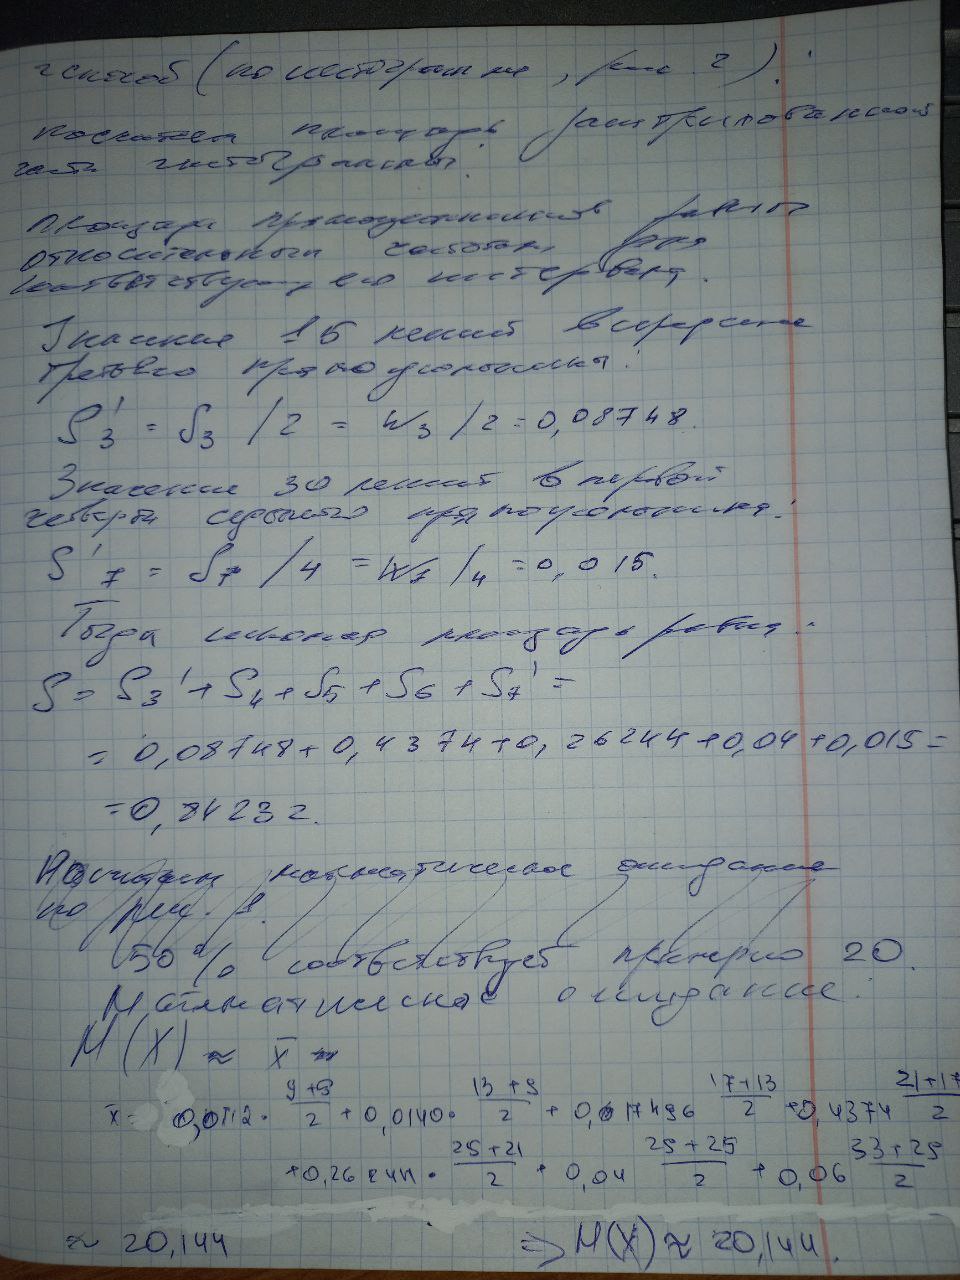 2 способ (по гистограмме, рис. 2):
Посчитаем площадь заштрихованной
части гистограммы.
Площади прямоугольников равны
относительным частотам для
соответствующего интервала.
Значение 15 лежит в середине
третьего прямоугольника:
S'3 = S3 / 2 = W3 / 2 = 0,08748.
Значение 30 лежит в первой
четверти седьмого прямоугольника:
S'7 = S7 / 4 = W7 / 4 = 0,015.
Тогда искомая площадь равна:
S = S3' + S4 + S5 + S6 + S7' =
= 0,08748 + 0,4374 + 0,26244 + 0,04 + 0,015 =
= 0,84232.
Посчитаем математическое ожидание
по рис. 1.
50% соответствует примерно 20.
Математическое ожидание:
M(X) ≈ x̄ ≈
x̄ = · 9+5/2 + 0,0140 · 13+9/2 + 0,17496 17+13/2 + 0,4374 21+17/2
+ 0,26244 · 25+21/2 + 0,04 29+25/2 + 0,06 33+29/2
≈ 20,144 ⇒ M(X) ≈ 20,144.